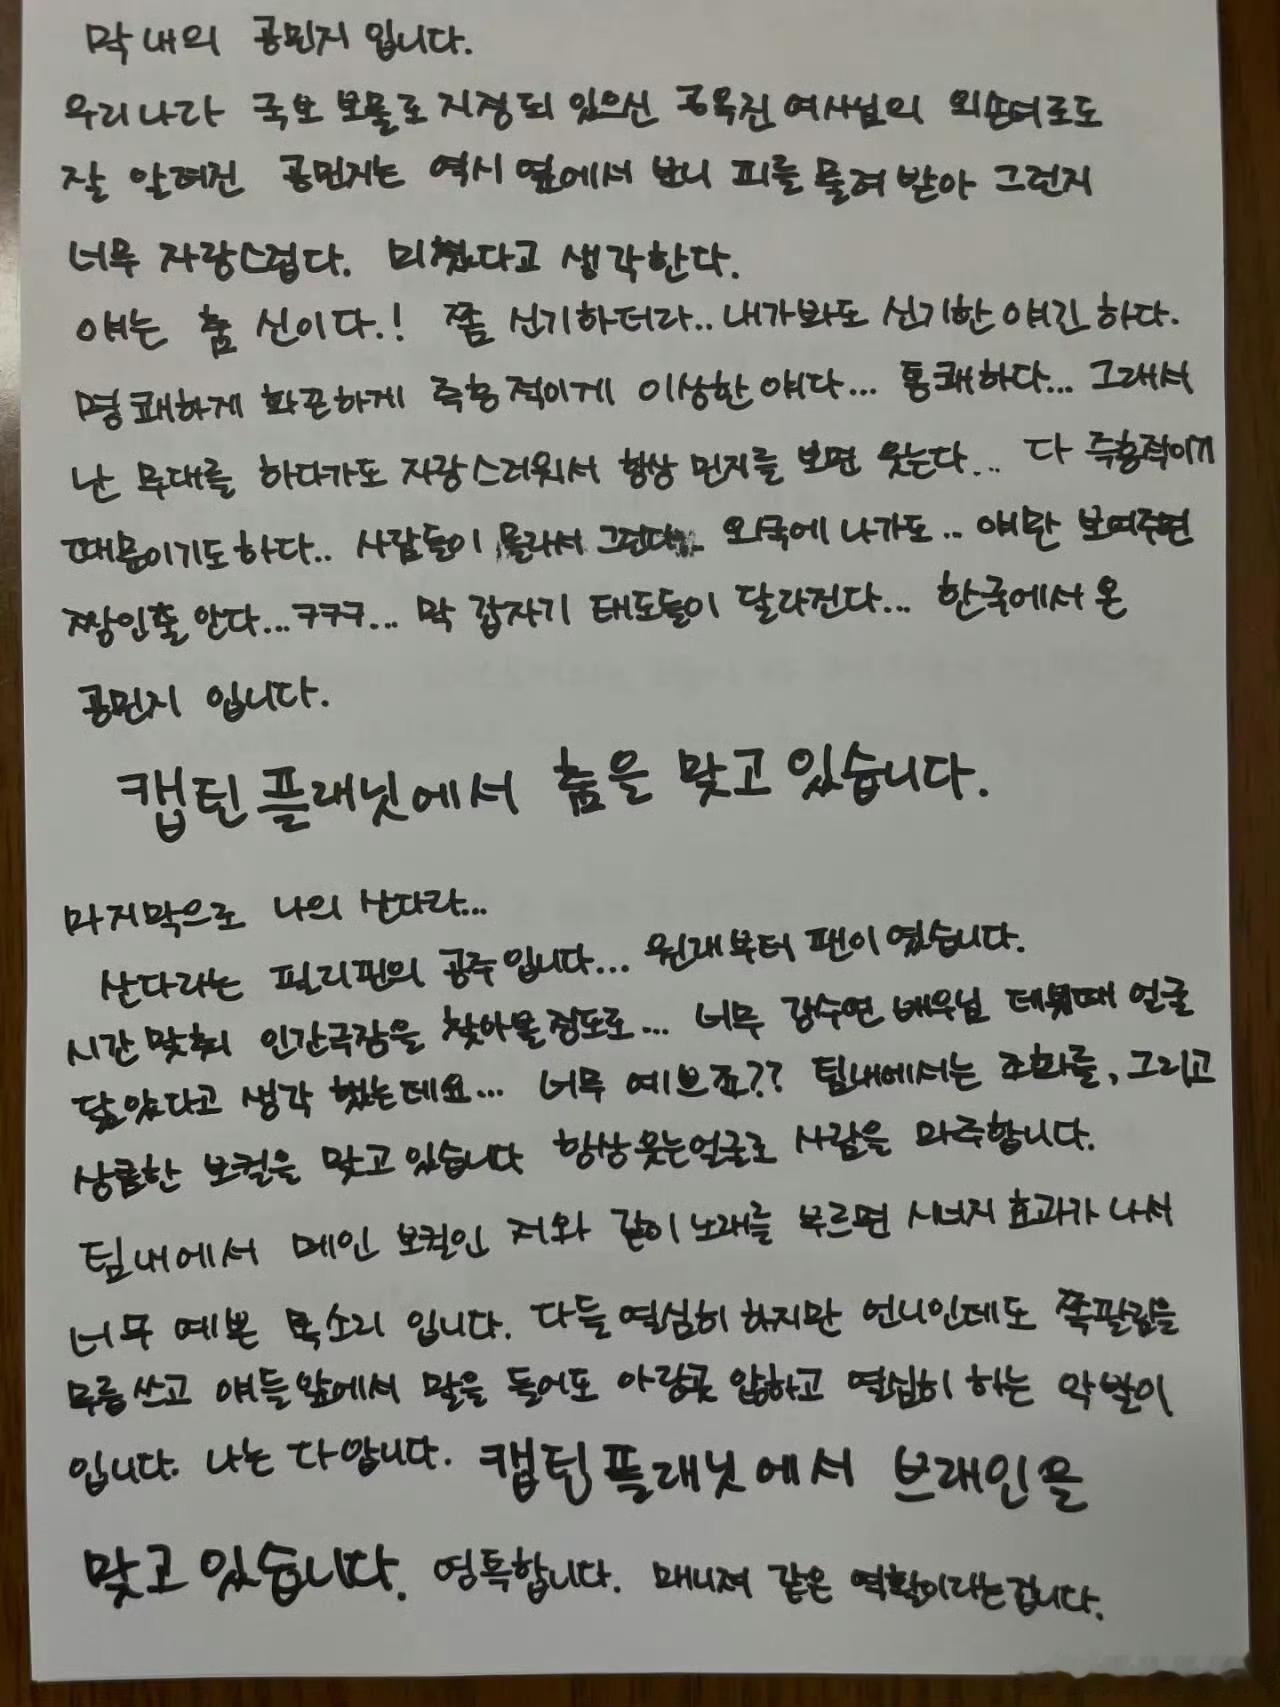 막내의 공민지 입니다.
우리나라 국보 보물로 지정되 있으신 공옥진 여사님의 외손녀로도
잘 알려진 공민지는 역시 옆에서 보니 피를 물려 받아 그런지
너무 자랑스럽다. 미쳤다고 생각한다.
얘는 춤 신이다.! 쫌 신기하더라.. 내가봐도 신기한 얘긴 하다.
명쾌하게 화끈하게 즉흥적이게 이상한 얘다... 통쾌하다... 그래서
난 무대를 하다가도 자랑스러워서 항상 민지를 보면 웃는다... 다 즉흥적이기
때문이기도하다.. 사람들이 몰라서 그런다.. 외국에 나가도.. 얘만 보여주면
짱인줄 안다...ㅋㅋㅋ... 막 갑자기 태도들이 달라진다... 한국에서 온
공민지 입니다.
캡틴플래닛에서 춤을 맞고 있습니다.
마지막으로 나의 산다라...
산다라는 필리핀의 공주입니다... 원래부터 팬이였습니다.
시간 맞춰 인간극장을 찾아볼정도로... 너무 강수연 배우님 데뷔때 얼굴
닮았다고 생각 했는데요... 너무 예쁘죠?? 팀내에서는 조화를, 그리고
상큼한 보컬을 맞고 있습니다 항상웃는얼굴로 사람을 마주합니다.
팀내에서 메인 보컬인 저와 같이 노래를 부르면 시너지 효과가 나서
너무 예쁜 목소리 입니다. 다들 열심히 하지만 언니인데도 쪽팔림을
무릎쓰고 얘들앞에서 말을 들어도 아랑곳 않하고 열심히 하는 악발이
입니다. 나는 다 압니다. 캡틴플래닛에서 브레인을
맞고 있습니다. 영특합니다. 매니져 같은 역활이라는겁니다.